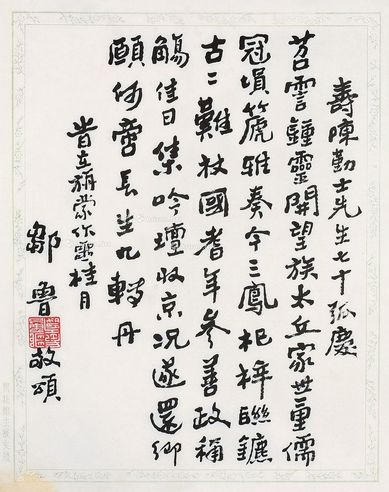 壽陳勤士先生七十弧慶
苕霅鍾靈開望族太丘家世重儒
冠塤篪雅奏今三鳳杞梓聯鑣
古二難杖國耆年參善政稱
觴佳日集吟壇收京況遂還鄉
願何啻長生九轉丹
旹在旃蒙作噩桂月
鄒魯敬頌